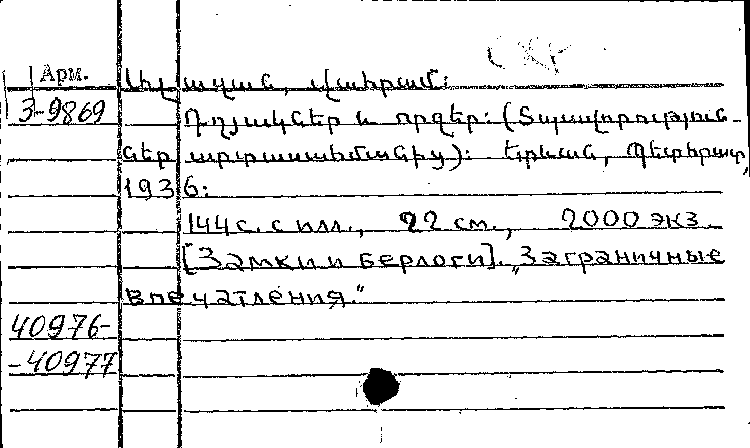 СХР
Арм.
Ալազան, Վահրամ:
3-9869
Դղյակներ և որջեր: (Տպավորություն-
ներ արտասահմանից): Երևան, Պետհրատ,
1936:
144 с. с илл., 22 см., 2000 экз
[Замки и берлоги]. „Заграничные
впечатления."
40976-
-40977